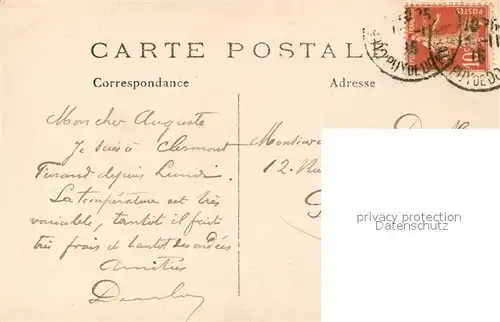 CARTE POSTALE
Correspondance
Adresse
POSTES
10
PUY DE DO
Mon cher Auguste
Je suis à Clermont
Ferrand depuis Lundi.
La température est très
variable, tantôt il fait
très frais et tantôt des
Amitiés
Monsieur
12. Ru
privacy protection
Datenschutz